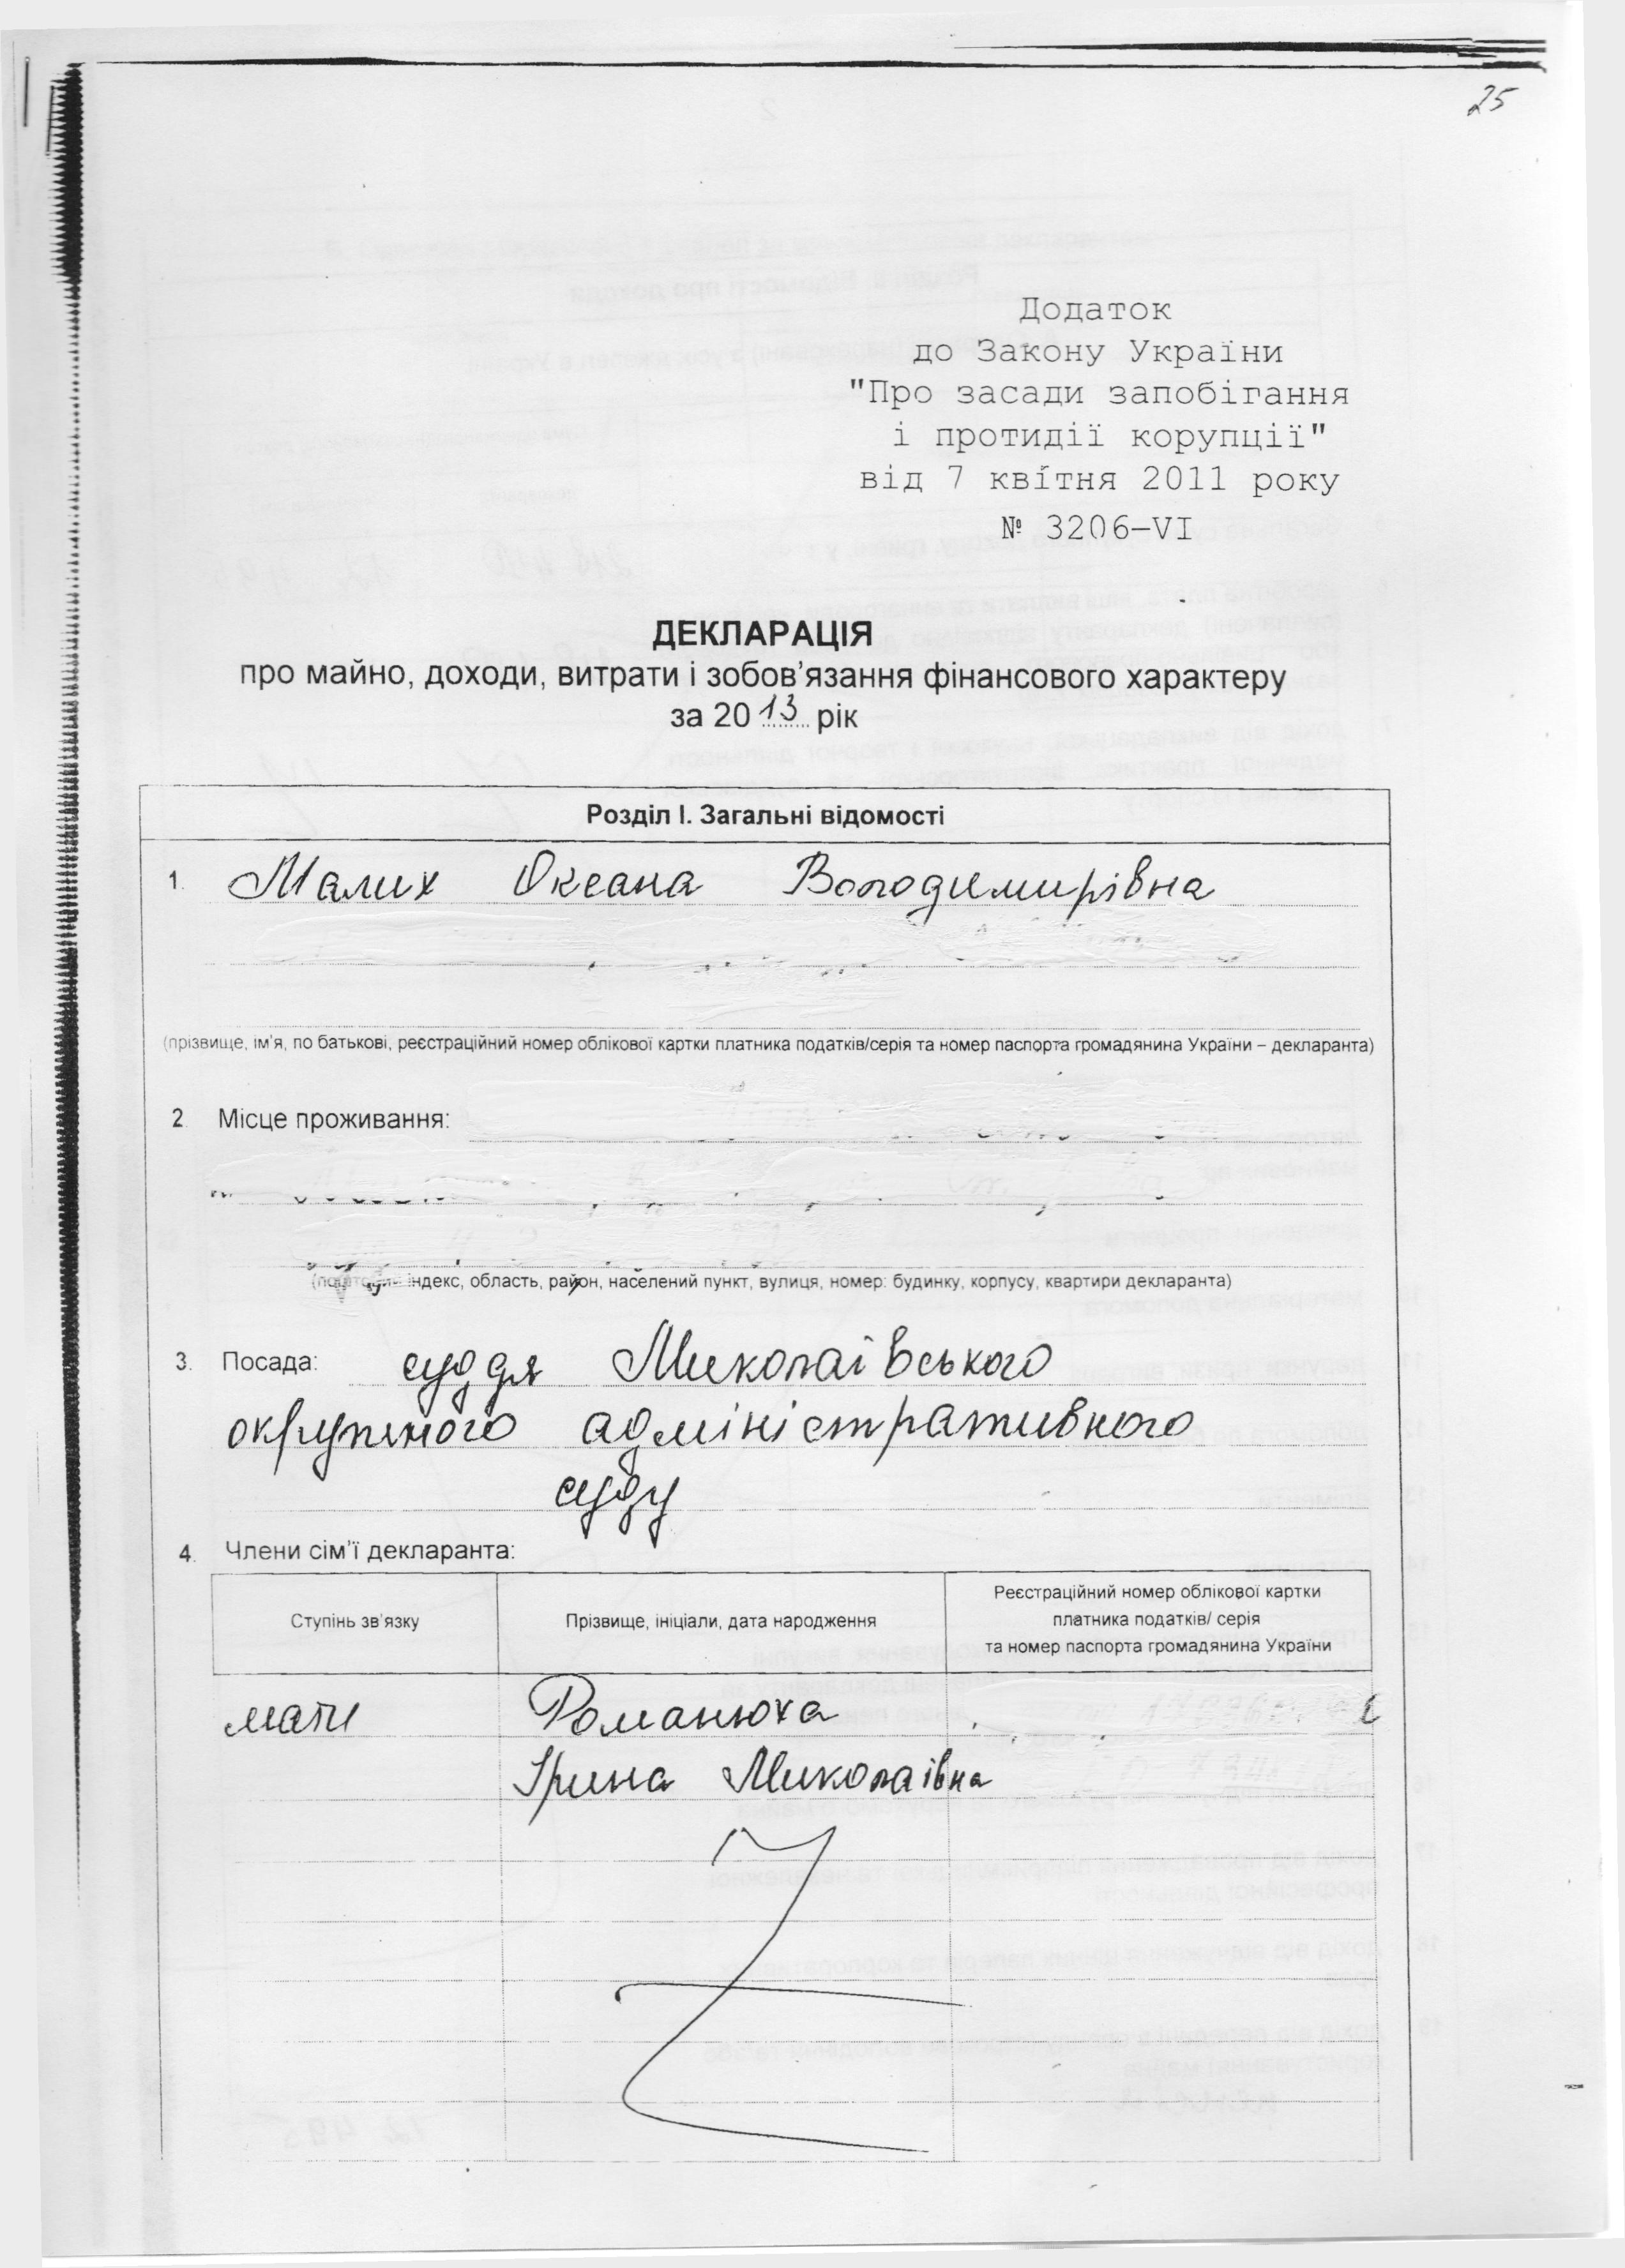 25
Додаток
до Закону України
"Про засади запобігання
і протидії корупції"
від 7 квітня 2011 року
№ 3206-VI
ДЕКЛАРАЦІЯ
про майно, доходи, витрати і зобов'язання фінансового характеру
за 2013 рік
Розділ І. Загальні відомості
1. Малих Оксана Володимирівна
(прізвище, ім'я, по батькові, реєстраційний номер облікової картки платника податків/серія та номер паспорта громадянина України – декларанта)
2 Місце проживання:
індекс, область, район, населений пункт, вулиця, номер: будинку, корпусу, квартири декларанта)
3. Посада: суддя Миколаївського
окружного адміністративного
суду
4. Члени сім'ї декларанта:
Ступінь зв'язку
Прізвище, ініціали, дата народження
Реєстраційний номер облікової картки
платника податків/ серія
та номер паспорта громадянина України
мати Романюха
Ірина Миколаївна